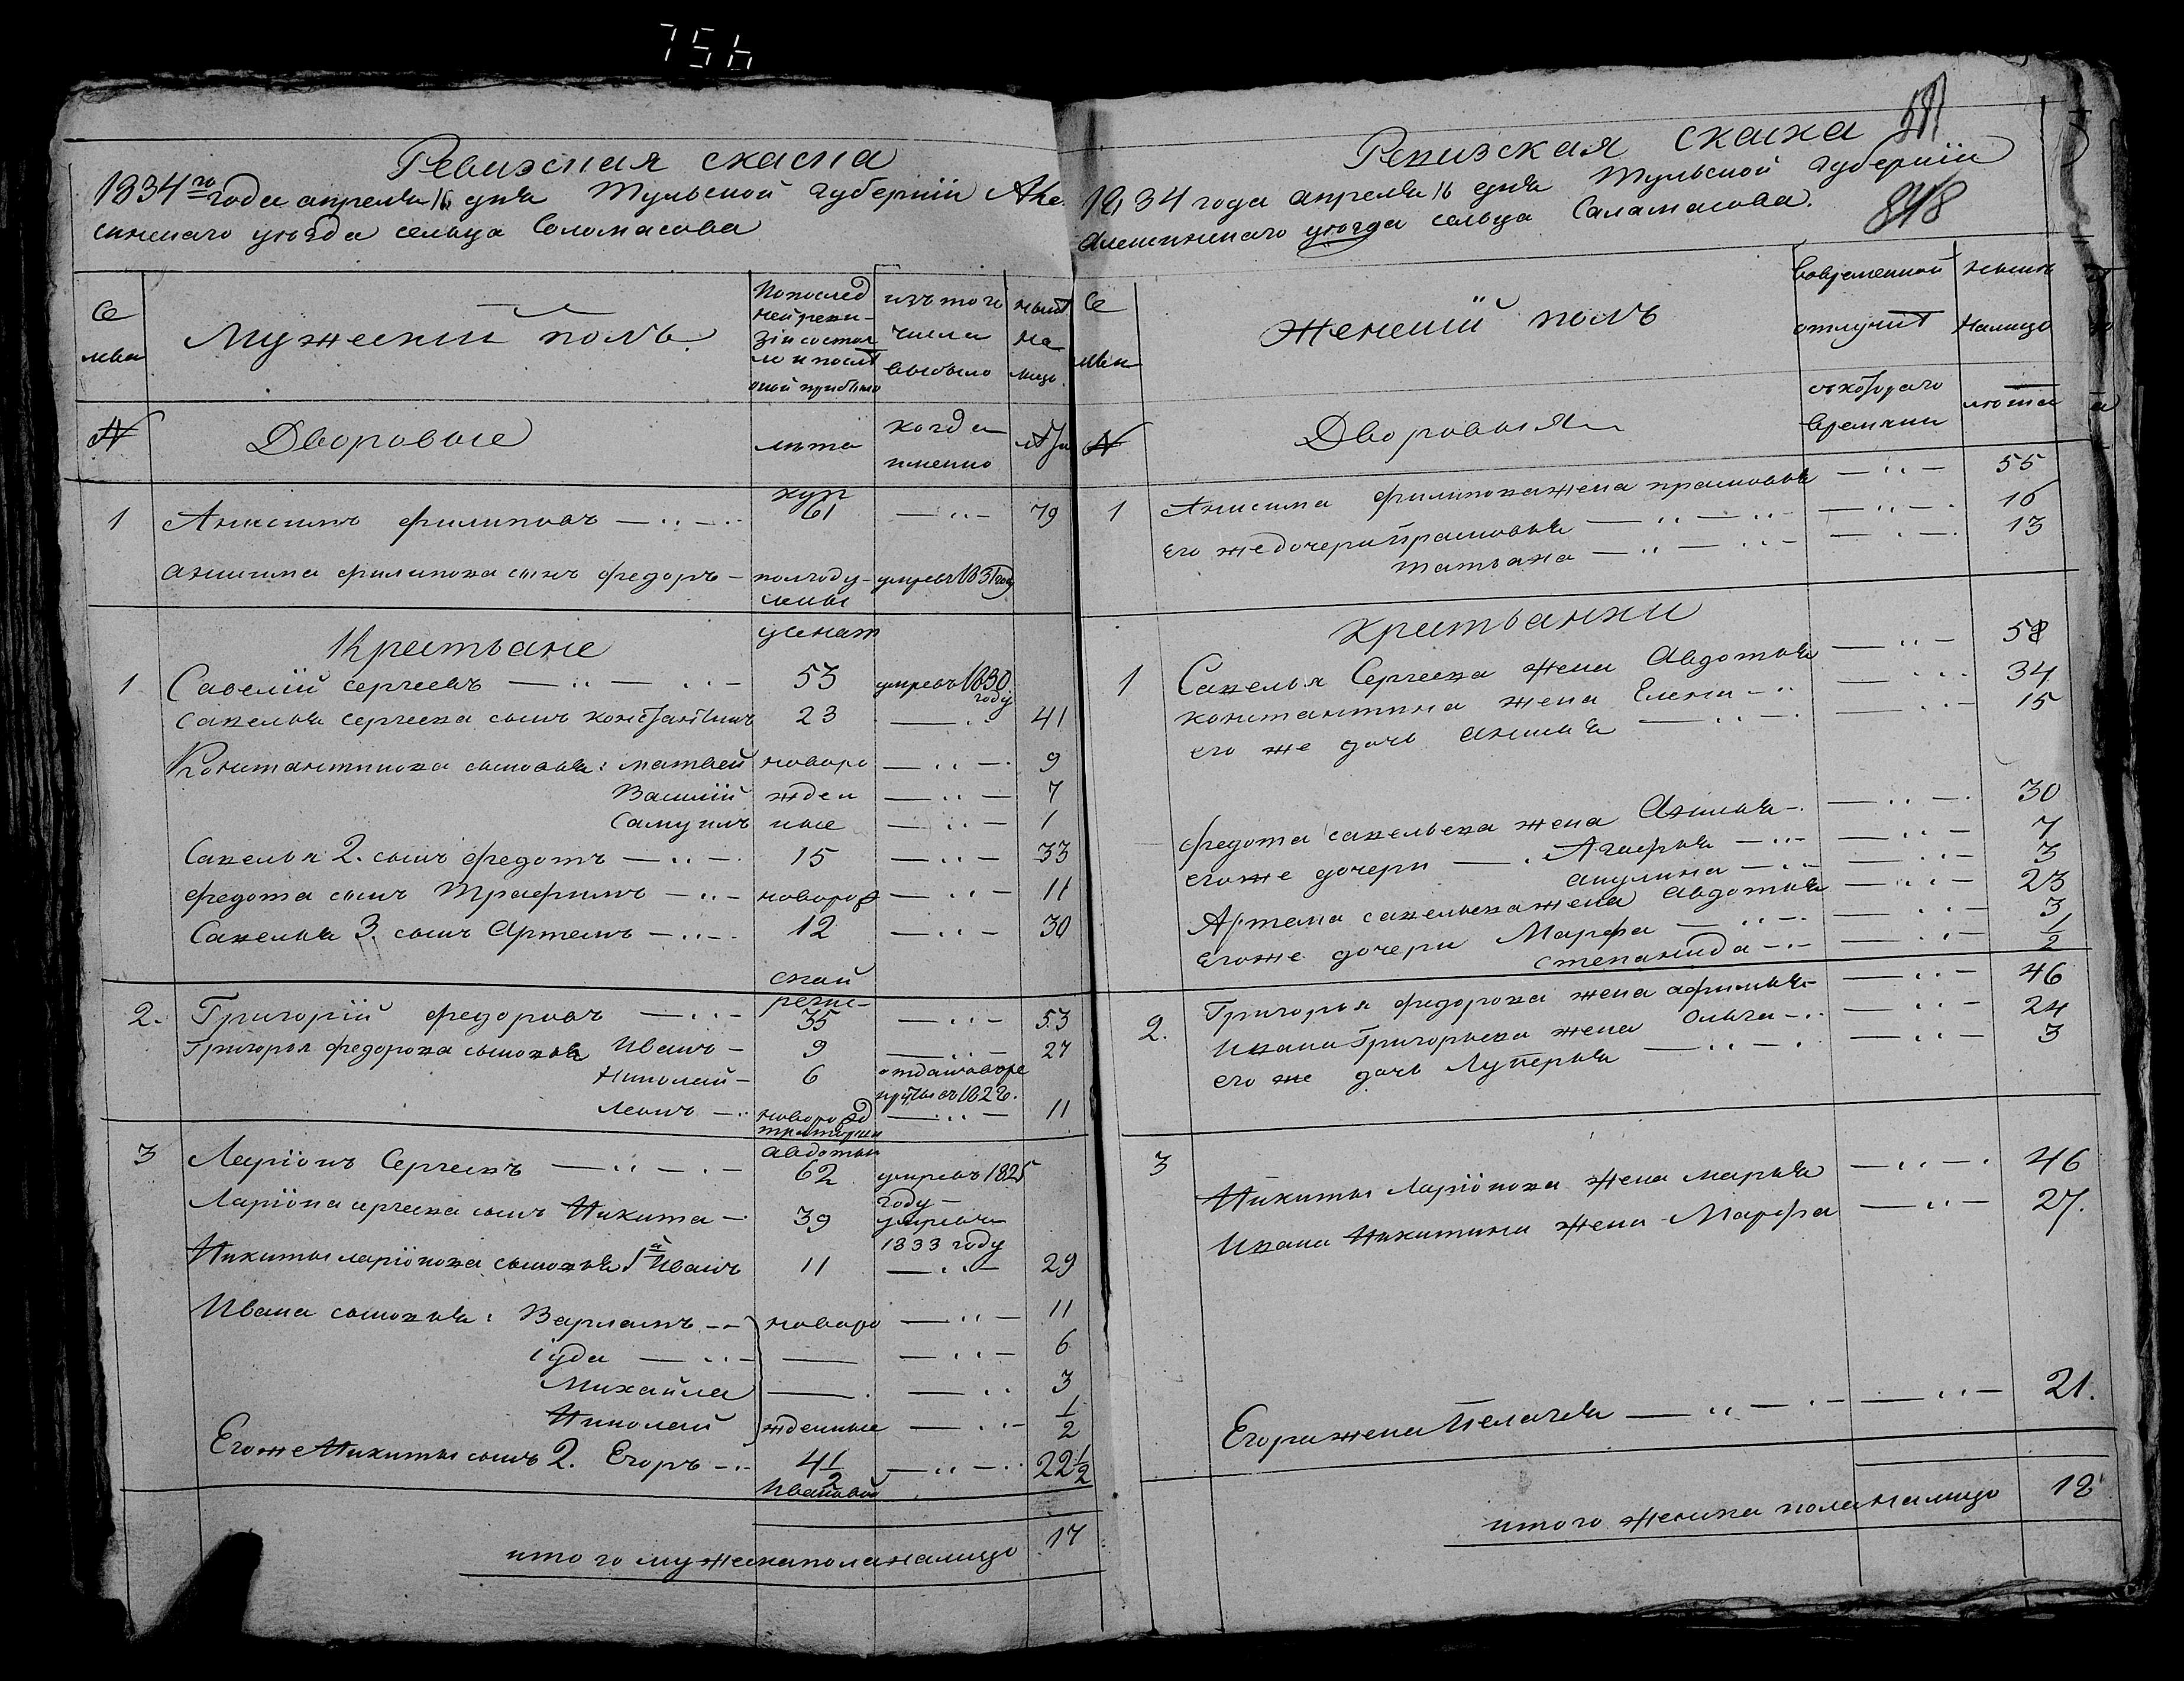 754
Ревизская скаска
1834го года апреля 16 дня Тульской губернiи Але
синскаго уѣзда сельца Соломасова
Се
мьи
Мужескiй полъ
По послед
ней реви-
зiи состоя
ло и послѣ
оной прибыло
изъ того
числа
выбыло
нынѣ
на
лицо
№
Дворовые
лѣта
когда
именно
лѣта
1 Анисимъ филиповъ 61 79
анисима филипова сынъ федоръ - полгоду - умревъ 1831 году
Крестьяне
1 Савелiй сергеевъ 53 умревъ 1830 году
савелья сергеева сынъ константинъ 23 41
Константинова сыновья: матвей новоро 9
Василiй жден 7
самуилъ ные 1
Савелья 2. сынъ федотъ 15 33
федота сынъ Трафимъ новорож 11
Савелья 3. сынъ Артемъ 12 30
ской
реви-
2. Григорiй федоровъ 35 53
Григорья федорова сыновья Иванъ 9 27
Николай 6 отдан в
1828.
Леонъ новорожд 11
авдотьи
3 Ларiонъ Сергеевъ 62 умревъ 1825
году
Ларiона сергеева сынъ Никита 39 умревъ
1833 году
Никиты ларiонова сыновья 1й Иванъ 11 29
Ивана сыновья: Варламъ новоро 11
iуда 6
Михайла 3
Николай жденные 1/2
Егоже Никиты сынъ 2. Егоръ 4 1/2 22 1/2
Ивановой
итого мужеска пола налицо 17
581
Ревизская скаска
1834 года апреля 16 дня Тульской губернiи
Алексинскаго уѣзда сельца Саламасова.
848
Се
мьи
Женскiй полъ
Вовременной
отлучкѣ
нынѣ
налицо
№
Дворовыя
съ котораго
времяни
лѣта
1 Анисима филипова жена прасковья 55
Его же дочери Прасковья 16
татьяна 13
Крестьянки
1 Савелья Сергеева жена Авдотья 58
константина жена Елена 34
его же дочь Анисья 15
федота савельева жена Аксинья 30
егоже дочери Агафья 7
акулина 3
Артема савельева жена Авдотья 23
егоже дочери Марфа 3
степанида 1/2
2. Григорья федорова жена афимья 46
Ивана Григорьева жена Ольга 24
его же дочь Лукерья 3
3 Никиты Ларiонова жена марья 46
Ивана Никитина жена Марфа 27.
Егора жена Пелагея 21.
итого женска пола налицо 18